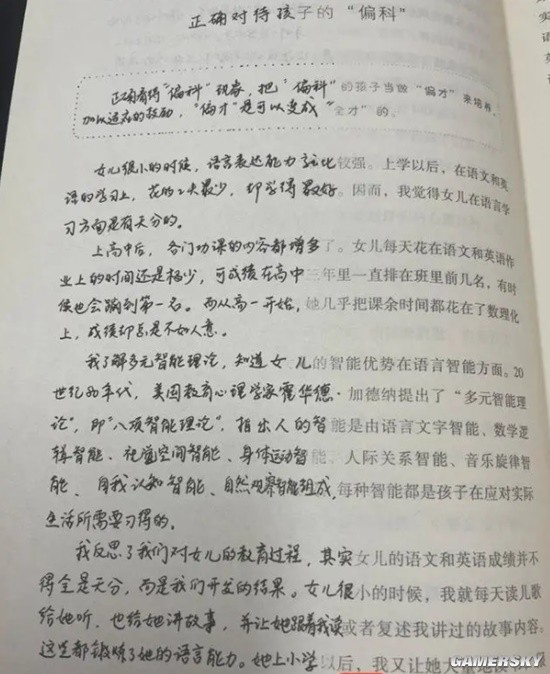 正确对待孩子的“偏科”
正确看待“偏科”现象，把“偏科”的孩子当做“偏才”来培养，
加以适应的鼓励，“偏才”是可以变成“全才”的。
女儿很小的时候，语言表达能力就比较强。上学以后，在语文和英
语的学习上，花的工夫最少，却学得最好。因而，我觉得女儿在语言学
习方面是有天分的。
上高中后，各门功课的内容都增多了。女儿每天花在语文和英语作
业上的时间还是极少，可成绩在高中三年里一直排在班里前几名，有时
候也会蹦到第一名。而从高一开始，她几乎把课余时间都花在了数理化
上，成绩却总是不如人意。
我了解多元智能理论，知道女儿的智能优势在语言智能方面。20
世纪80年代，美国教育心理学家霍华德·加德纳提出了“多元智能理
论”，即“八项智能理论”，指出人的智能是由语言文字智能、数学逻
辑智能、视觉空间智能、身体运动智能、人际关系智能、音乐旋律智
能、自我认知智能、自然观察智能组成，每种智能都是孩子在应对实际
生活所需要习得的。
我反思了我们对女儿的教育过程，其实女儿的语文和英语成绩并不
得全是天分，而是我们开发的结果。女儿很小的时候，我就每天读儿歌
给她听，也给她讲故事，并让她跟着我读或者复述我讲过的故事内容。
这些都锻炼了她的语言能力。她上小学以后，我又让她大量地
GAMERSKY